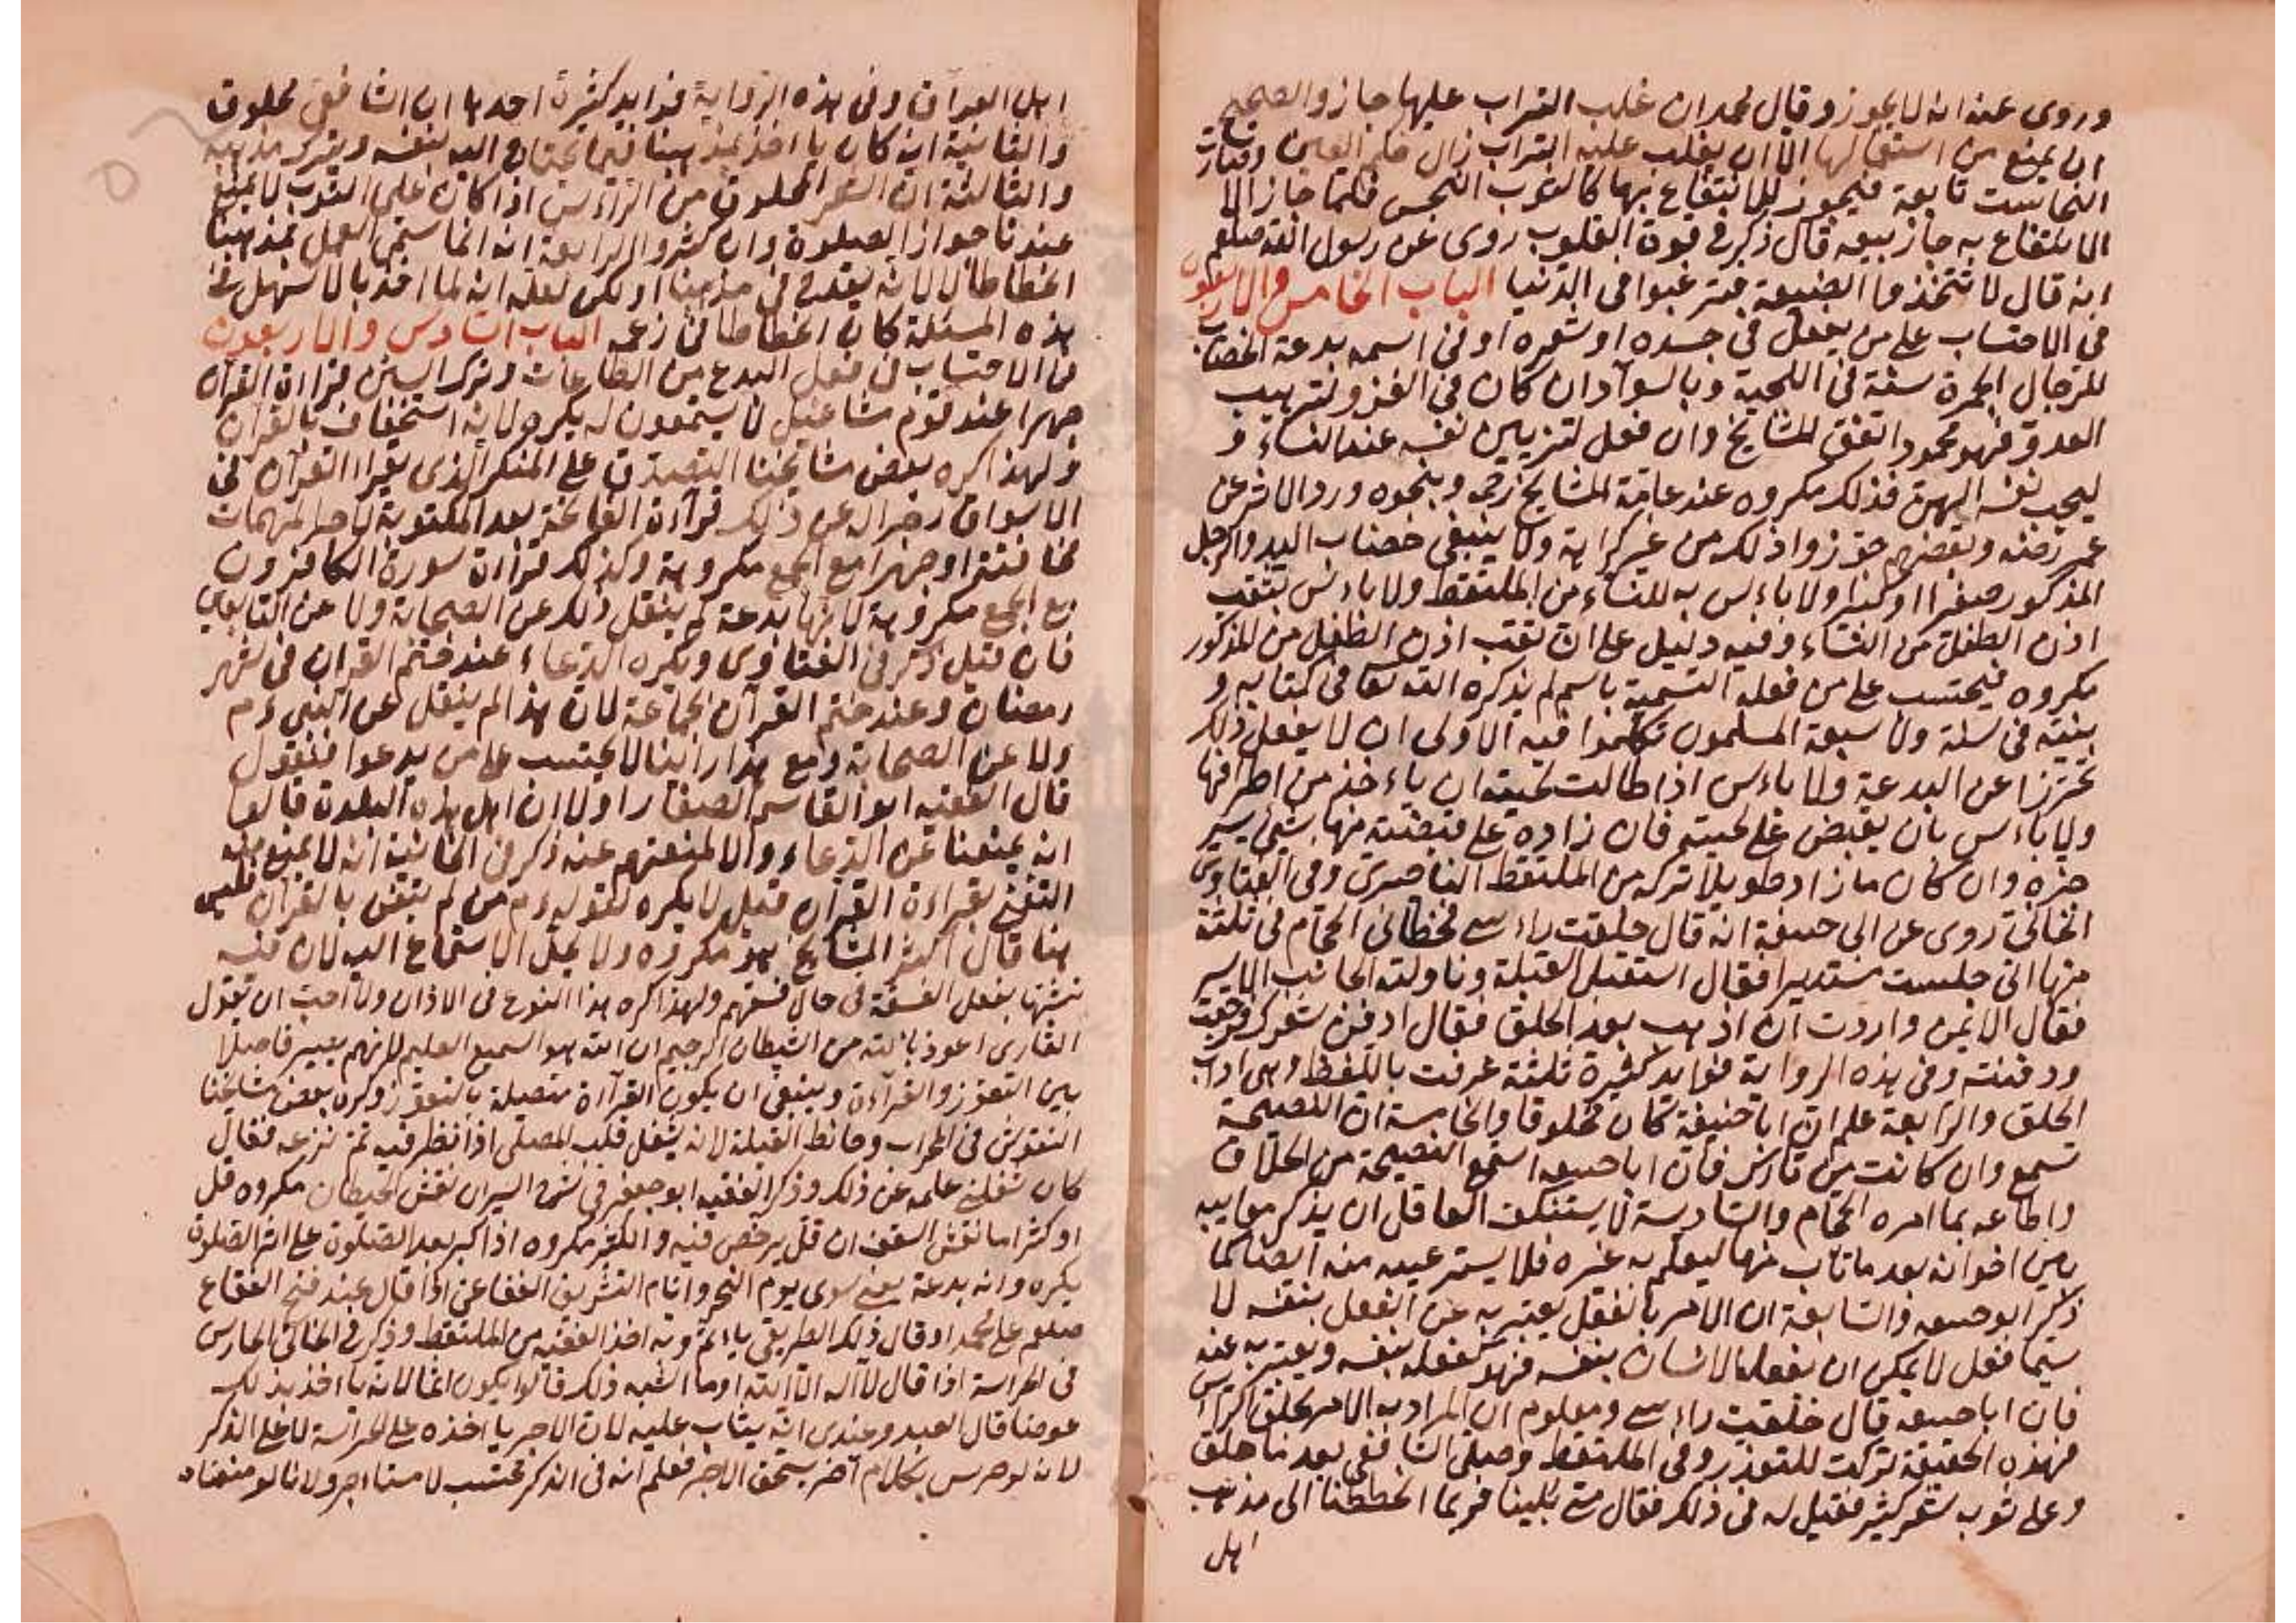 وروى عنه انه لا يجوز وقال محمد ان غلب التراب عليها جاز والصحيح
ان يمنع من استعمالها الا ان يغلب عليه التراب زال حكم العين وصارت
النجاست تابعة فيجوز للانتفاع بها كالثوب النجس فكما جاز الا
الانتفاع به جاز بيعه قال ذكر في قوة القلوب روى عن رسول الله صلعم
انه قال لا تتخذوا الضيعة فترغبوا في الدنيا الباب الخامس والاربعون
في الاحتساب على من يفعل في جسده او شعره او في اسمه بدعة الخضاب
للرجال الحمرة سنة في اللحية وبالسواد ان كان في الغزو لترهيب
العدو فهو محمود اتفق المشايخ وان فعل لتزيين نفسه عند النساء و
ليحب نفسه اليهن فذلك مكروه عند عامة المشايخ رحمه وبنحوه ورد الاثر عن
عمر رضه وبعضهم جوزوا ذلك من غير كراهة ولا ينبغي خضاب اليد والرجل
المذكور صغيرا او كبيرا ولا باءس به للنساء من الملتقط ولا باءس بثقب
اذن الطفل من النساء وفيه دليل على ان ثقب اذن الطفل من المذكور
مكروه فيحتسب على من فعله التسمية باسم لم يذكره الله تعا في كتابه و
بنيته في سنته ولا سبعة المسلمون تكلموا فيه الاولى ان لا يفعل ذلك
تحترزا عن البدعة ولا باءس اذا طالت لحيته ان ياءخذ من اطرافها
ولا باءس بان يقبض على لحيته فان زاده على قبضته منها شئ يسير
جزه وان كان ما زاد طويلا تركه من الملتقط الناصرى وفي الفتاوى
الخاني روى عن ابي حنيفة انه قال حلقت راءسي فخطاني الحجام في ثلثة
منها اني جلست مستديرا فقال استقبل القبلة وناولته الجانب الايسر
فقال الايمن واردت ان اذهب بعد الحلق فقال ادفن شعرك فرجعت
ودفنته وفي هذه الرواية فوايد كثيرة ثلثة عرفت باللفظ وهي اداب
الحلق والرابعة علم ان ابا حنيفة كان محلوقا والخامسة ان النصيحة
تسمع وان كانت من فارس فان ابا حنيفه استمع النصيحة من الحلاق
واطاعه بما امره الحجام والسادسة لا يستنكف العاقل ان يذكر معايبه
بين اخوانه بعد ما تاب منها ليعلم به غيره فلا يستر عيبه منه ايضا كما
ذكر ابو حنيفه والسابعة ان الامر بالفعل يعتبر به عن الفعل بنفسه لا
سيما فعل لا يمكن ان يفعله الانسان بنفسه فهو كفعله بنفسه ويعتبر به عنه
فان ابا حنيفه قال حلقت راءسي ومعلوم ان المراد به الامر بحلق الراس
فهذه الحقيقة تركت للتعذر وفي الملتقط وصلى الشافعي بعد ما حلق
وعلى ثوب شعر كثير فقيل له في ذلك فقال متى بلينا فربما انحططنا الى مذهب
اهل
اهل العراق وفي هذه الرواية فوايد كثيرة احدها ان الشافعي محلوق
والثانية انه كان ياءخذ بمذهبنا فيما يحتاج اليه لنفسه ويترك مذهبه
والثالثة ان الشعر المحلوق من الراءس اذا كان على الثوب لا يمنع
عندنا جواز الصلوة وان كثر والرابعة انه انما سمى العمل بمذهبنا
انحطاطا لا لانه يعتقد في مذهبنا ولكن لعله انه لما اخذ بالاسهل في
هذه المسئلة كان انحطاطا في زعمه الباب السادس والاربعون
في الاحتساب في فعل البدع من الطاعات وترك السنن قراءة القرآن
جهرا عند قوم مشاغيل لا يستمعون له يكره لانه استخفاف بالقرآن
ولهذا كره بعض مشايخنا التصدق على المنكر الذى يقراء القرآن في
الاسواق زجرا له عن ذلك قراءة الفاتحة بعد المكتوبة لاجل المهمات
مخافتة او جهرا مع الجمع مكروهة وكذلك قراءة سورة الكافرون
مع الجمع مكروهة لانها بدعة لم ينقل ذلك عن الصحابة ولا عن التابعين
فان قيل ذكر في الفتاوى ويكره الدعاء عند ختم القرآن في شهر
رمضان وعند ختم القرآن بجماعة لان هذا لم ينقل عن النبي ءم
ولا عن الصحابة ومع هذا راينا لا يحتسب على من يدعوا فنقول
قال الفقيه ابو القاسم الصفار اولا ان اهل هذه البلدة قالوا
انه يمنعنا عن الدعاء والا لمنعتهم عنه ذكر في الخانية انه لا يمنع منه
التغني بقراءة القرآن قيل لا يكره لقوله ءم من لم يتغن بالقرآن فليس
منا قال اكثر المشايخ هو مكروه ولا يحل الاستماع اليه لان فيه
تشبها بفعل الفسقة في حال فسقهم ولهذا كره هذا النوع في الاذان ولا احب ان يقول
القارى اعوذ بالله من الشيطان الرجيم ان الله هو السميع العليم لانهم يصير فاصلا
بين التعوذ والقراءة وينبغي ان يكون القراءة متصلة بالتعوذ وكره بعض مشايخنا
النقوش في المحراب وحائط القبلة لانه يشغل قلب المصلى اذا نظر فيه ثم نزعه فقال
كان شغلني علمه عن ذلك وذكر الفقيه ابو جعفر في شرح السير ان نقش الحيطان مكروه قل
او كثر اما نقش السقف ان قل يرخص فيه والكثير مكروه اذا كبر بعد الصلوة على اثر الصلوة
يكره وانه بدعة يعني سوى يوم النحر وايام التشريق الفقاعي اذا قال عند فتح الفقاع
صلعم على محمد او قال ذلك الطريقي ياثم وبه اخذ الفقيه من الملتقط وذكر في الخاني الحارس
في الحراسة اذا قال لا اله الا الله او ما اشبه ذلك قالوا يكون اثما لانه ياءخذ بذلك
عوضا قال العبد وعندى انه يثاب عليه لان الاجر ياءخذه على الحراسة لا على الذكر
لانه لو حرس بكلام آخر يستحق الاجر فعلم انه في الذكر محتسب لا مستاجر ولانا لو منعناه